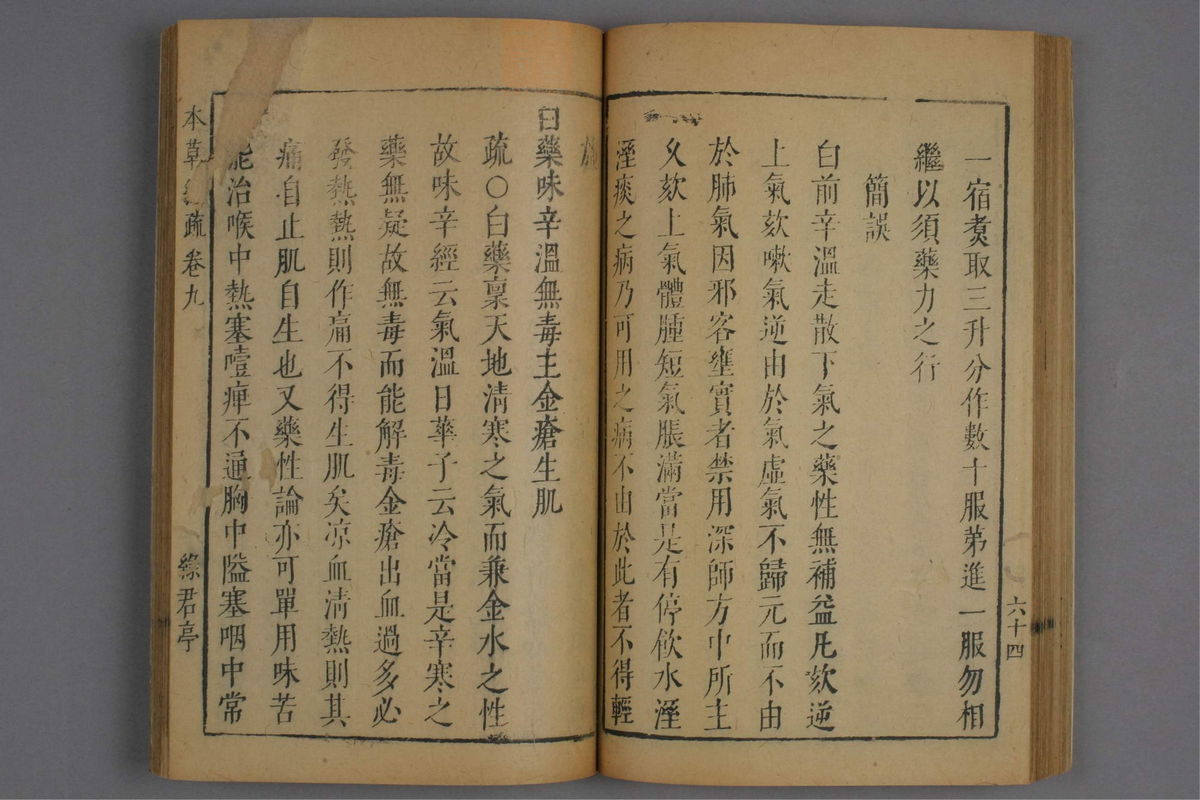 一宿煑取三升分作數十服弟進一服勿相
繼以須藥力之行
簡誤
白前辛溫走散下氣之藥性無補益凡欬逆
上氣欬嗽氣逆由於氣虛氣不歸元而不由
於肺氣因邪客壅實者禁用深師方中所主
久欬上氣體腫短氣脹滿當是有停飲水溼
溼痰之病乃可用之病不由於此者不得輕
六十四
施
白藥味辛溫無毒主金瘡生肌
疏○白藥稟天地清寒之氣而兼金水之性
故味辛經云氣溫日華子云冷當是辛寒之
藥無疑故無毒而能解毒金瘡出血過多必
發熱熱則作痛不得生肌矣凉血清熱則其
痛自止肌自生也又藥性論亦可單用味苦
能治喉中熱塞噎痺不通胸中隘塞咽中常
本草經疏 卷九
綠君亭